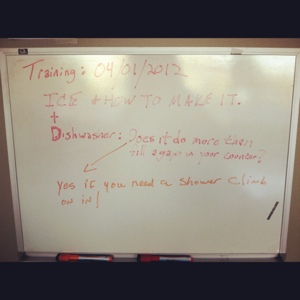 Training: 04/01/2012
ICE & HOW TO MAKE IT.
+
Dishwasher: Does it do more then
in your counter?
Yes if you need a shower climb
on in!